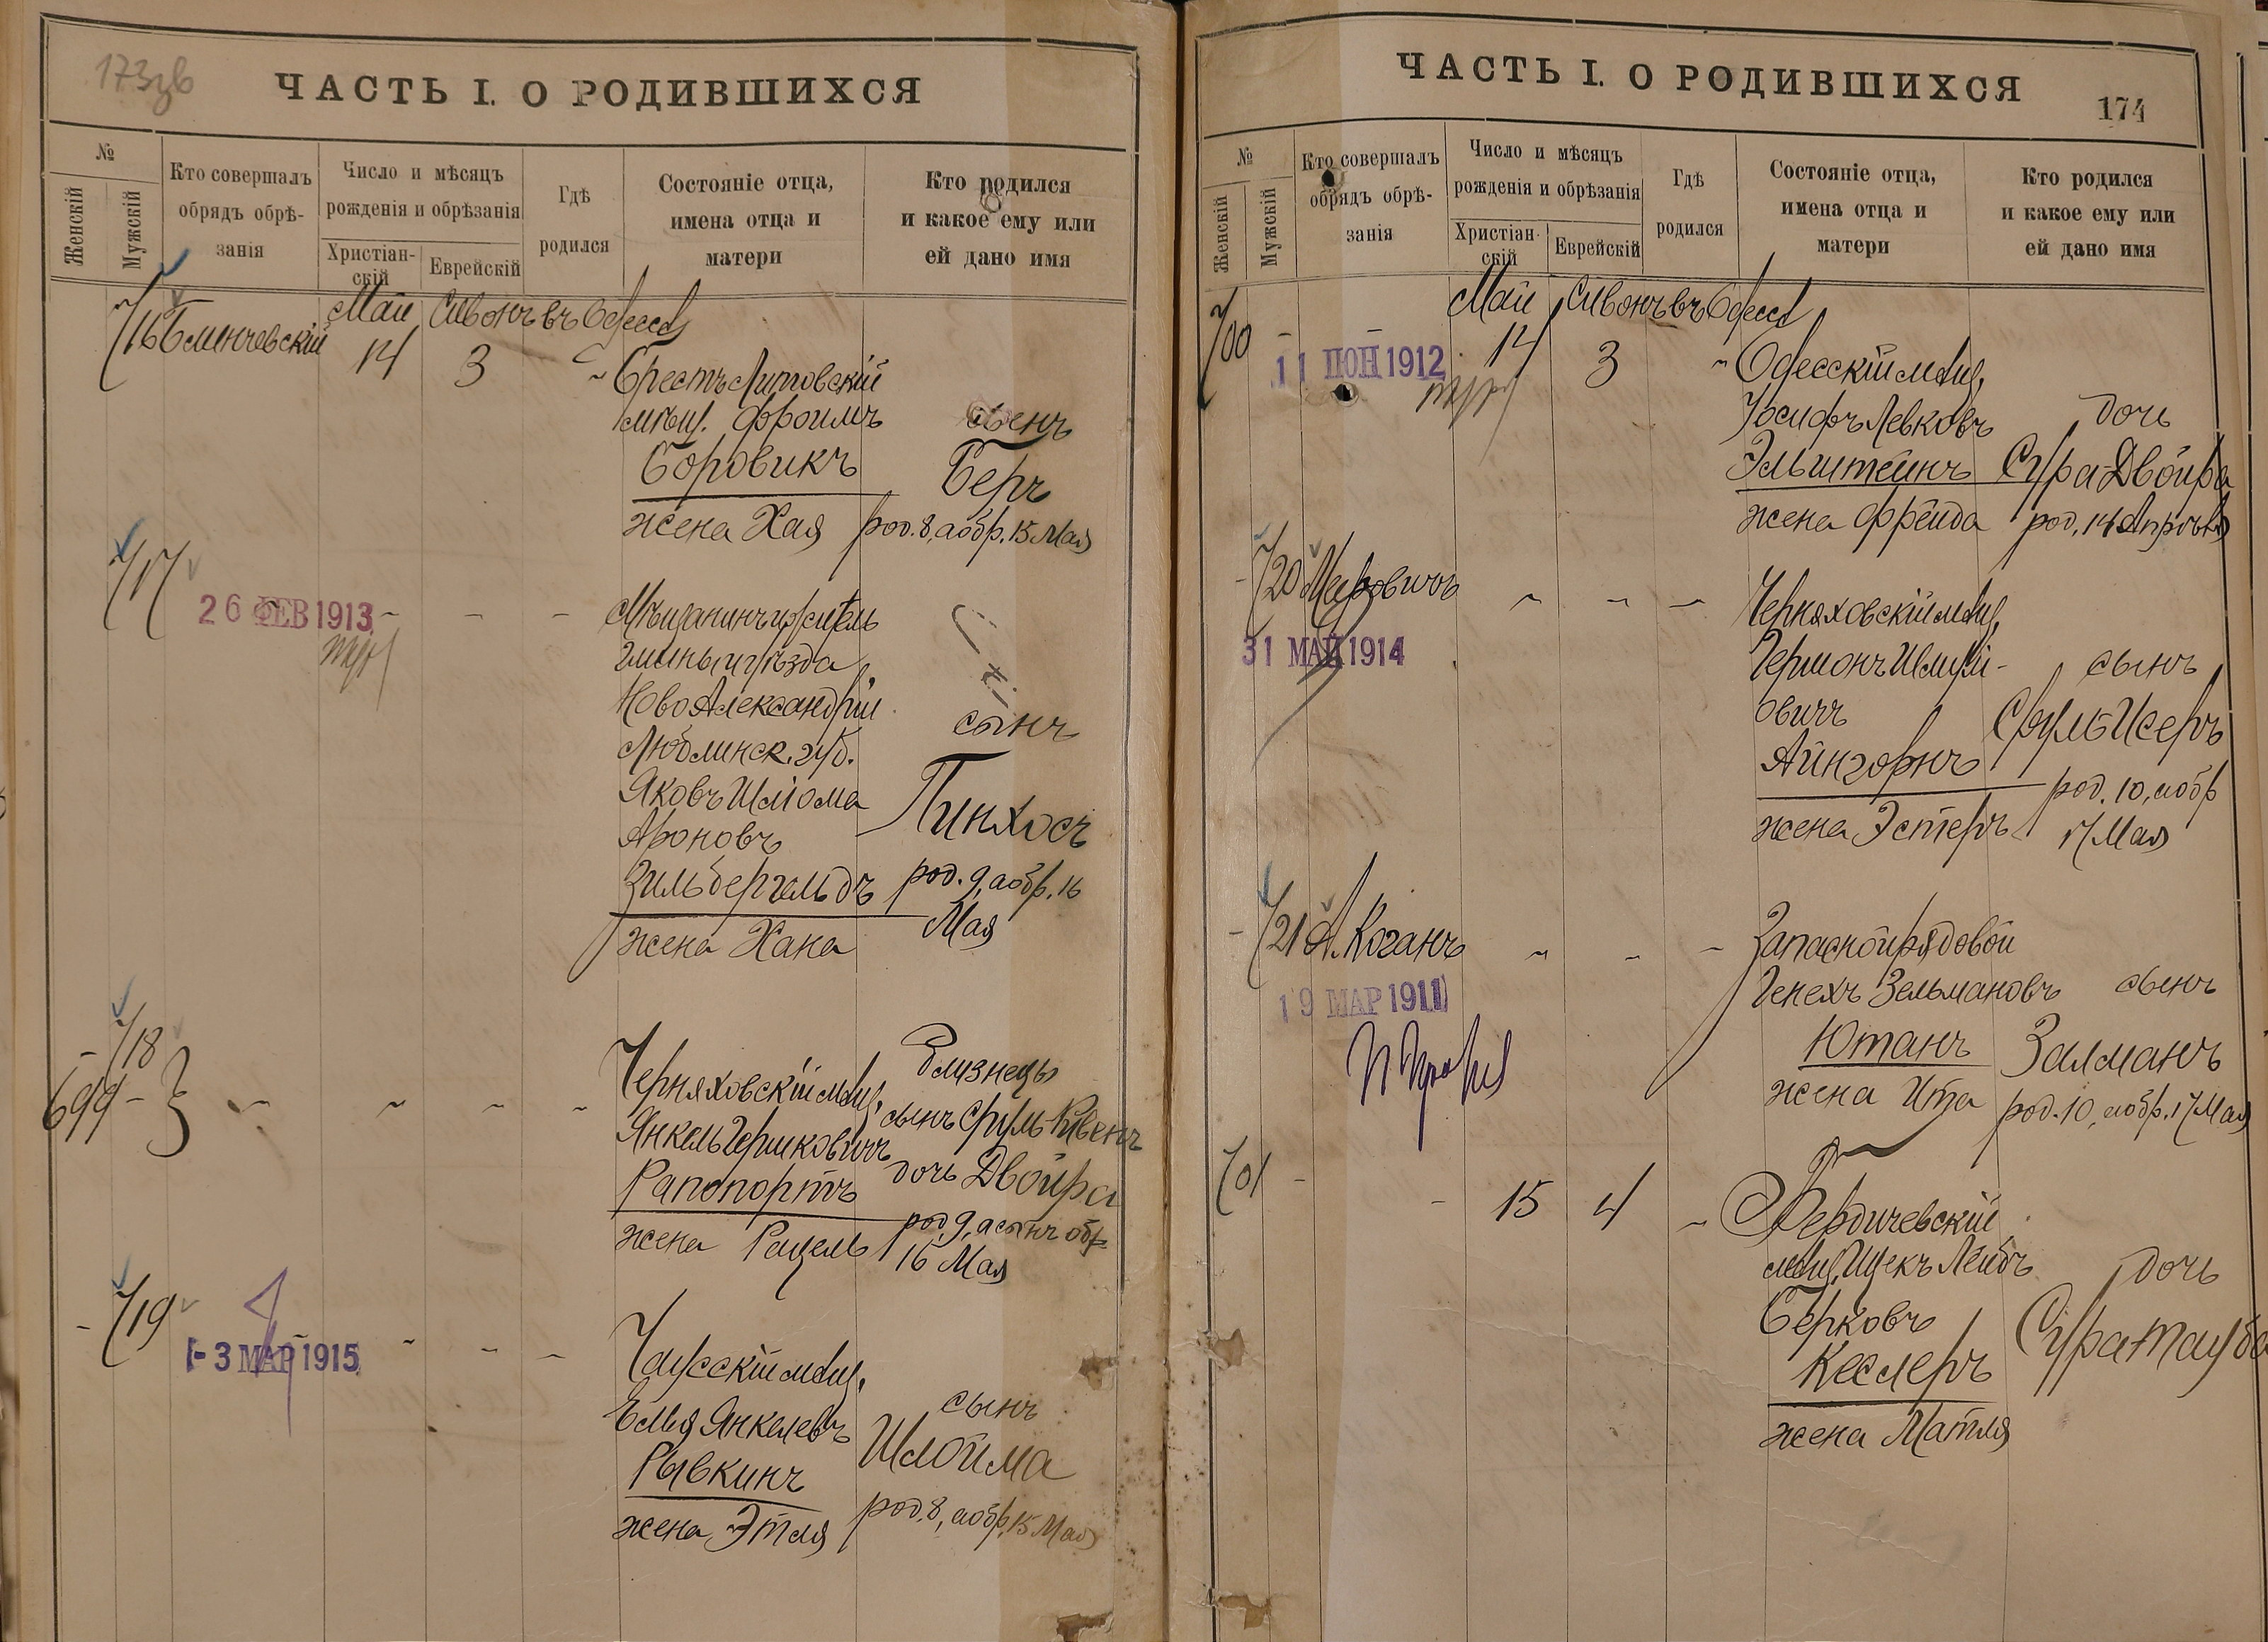 173зв
ЧАСТЬ I. О РОДИВШИХСЯ
№
Женскій
Мужскій
Кто совершалъ
обрядъ обрѣ-
занія
Число и мѣсяцъ
рожденія и обрѣзанія
Христіан-
скій
Еврейскій
Гдѣ
родился
Состояніе отца,
имена отца и
матери
Кто родился
и какое ему или
ей дано имя
Май Сивонъ въ Одессѣ
716 Блинчевскій 14 3 Брестъ Литовскій
мѣщ. Фроимъ сынъ
Боровикъ Беръ
жена Хая род. 8, а обр. 15 Мая
717
26 ФЕВ 1913
Мѣщанинъ житель
гмины и уѣзда
Ново Александріи
Люблинск. губ. сынъ
Яковъ Шліома Пинхосъ
Ароновъ
Зильбергельдъ род. 9, а обр. 16
жена Хана Мая
718
699
Черняховскій мѣщ. близнецы
Янкель Гершковичъ сынъ Сруль-Кивенъ
Рапопортъ дочь Двойра
жена Рацель род. 9, а сынъ обр
16 Мая
719
3 МАР 1915
Чаусскій мѣщ.
Елья Янкелевъ сынъ
Рывкинъ Шлойма
жена Этля род. 8, а обр. 15 Мая
ЧАСТЬ I. О РОДИВШИХСЯ
174
№
Женскій
Мужскій
Кто совершалъ
обрядъ обрѣ-
занія
Число и мѣсяцъ
рожденія и обрѣзанія
Христіан-
скій
Еврейскій
Гдѣ
родился
Состояніе отца,
имена отца и
матери
Кто родился
и какое ему или
ей дано имя
Май Сивонъ въ Одессѣ
700 14 3 Одесскій мѣщ.
1912
Іосифъ Левковъ дочь
Эльштейнъ Сура Двойра
жена Фрейда род. 14 Апрѣля
720 Мировичъ Черняховскій мѣщ.
31 МАЙ 1914
Гершонъ Шмулі- сынъ
овичъ Сруль Исеръ
Айнгорнъ род. 10, а обр
жена Эстеръ 17 Мая
721 А. Коганъ Запасной рядовой
19 МАР 1911
Генехъ Зельмановъ сынъ
Ютанъ Залманъ
жена Ита род. 10, а обр. 17 Мая
701 15 4 Бердичевскій
мѣщ. Ицекъ Лейбъ дочь
Берковъ Сура Тауба
Кеслеръ
жена Матля